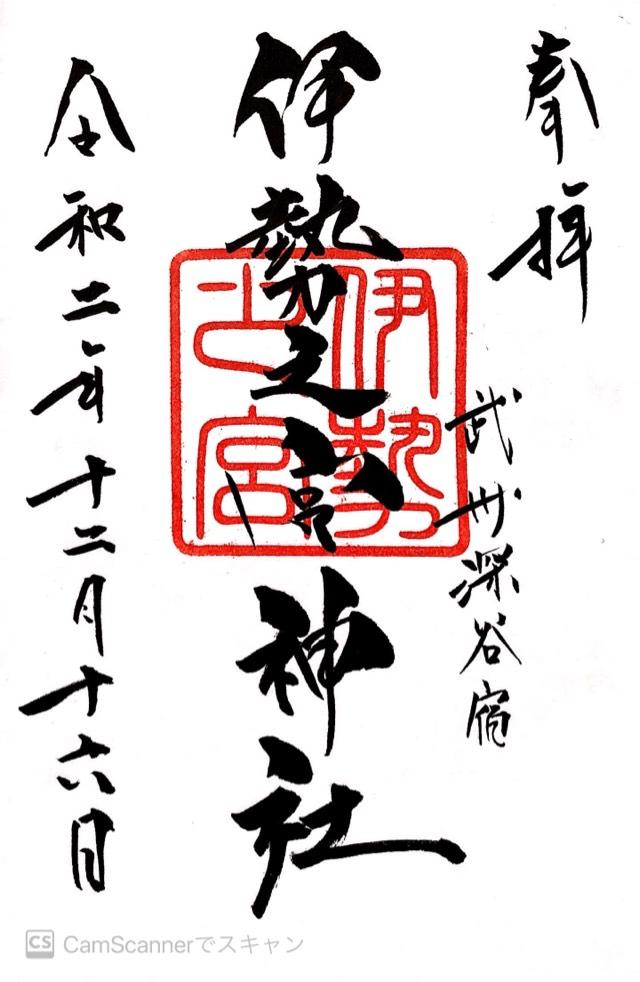 奉拝
武州深谷宿
伊勢之宮神社
伊勢
之宮
令和二年十二月十六日
CS CamScannerでスキャン